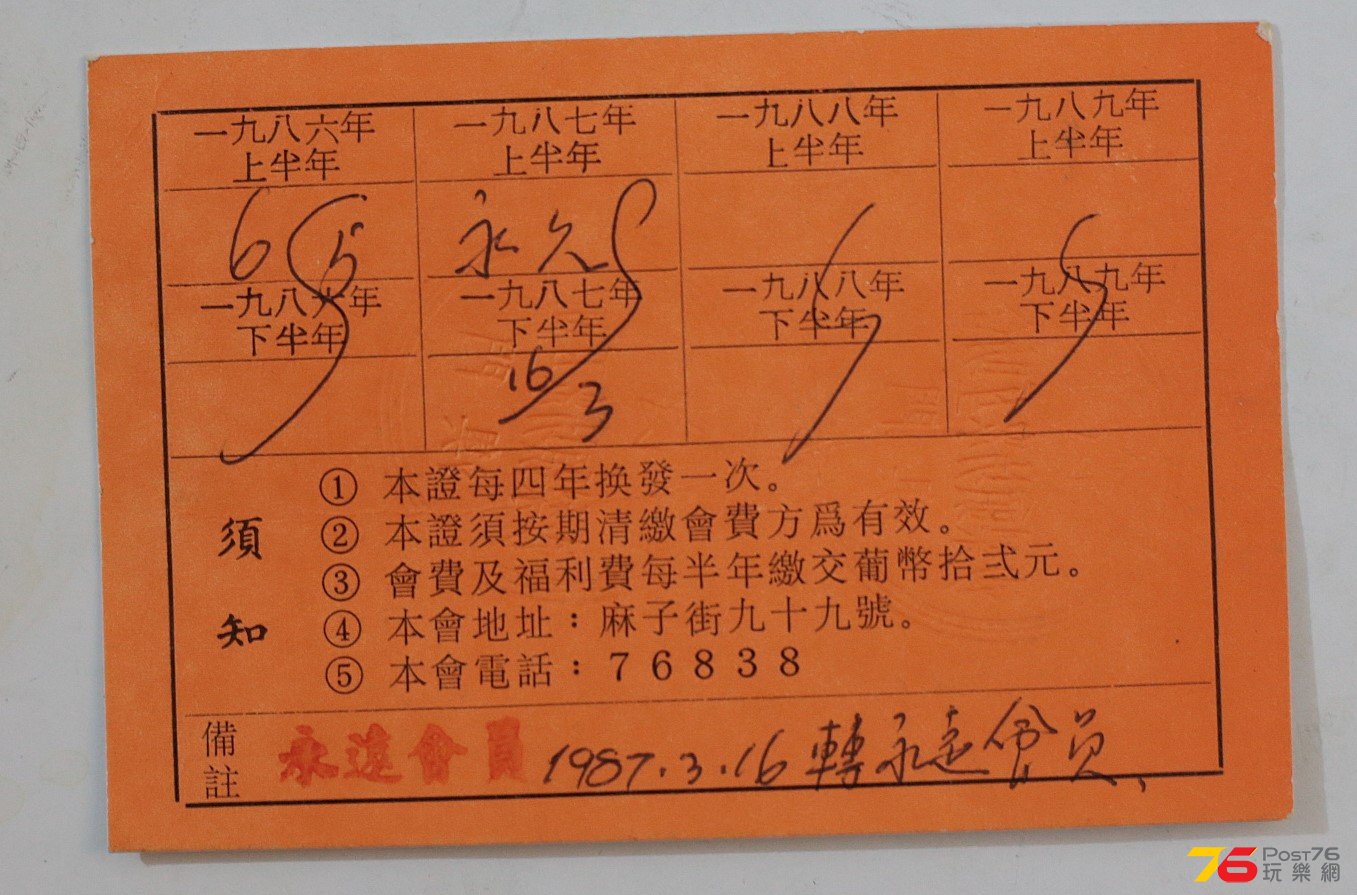 一九八六年 一九八七年 一九八八年 一九八九年
上半年 上半年 上半年 上半年
6 永久
一九八六年 一九八七年 一九八八年 一九八九年
下半年 下半年 下半年 下半年
16/3
須知
① 本證每四年换發一次。
② 本證須按期清繳會費方爲有效。
③ 會費及福利費每半年繳交葡幣拾弍元。
④ 本會地址：麻子街九十九號。
⑤ 本會電話：76838
備註 永遠會員 1987.3.16 轉永遠會员、
POST76
玩樂網